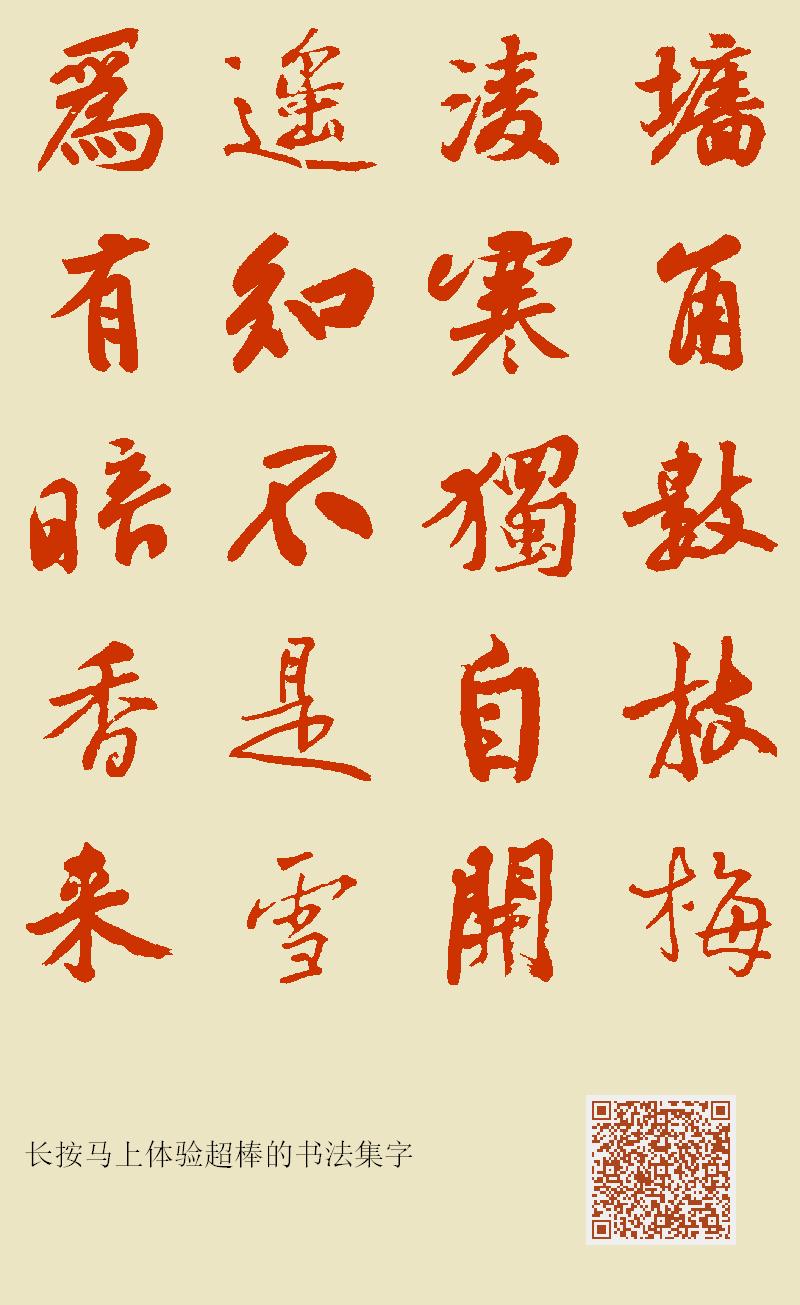 墻角數枝梅
淩寒獨自開
遥知不是雪
爲有暗香来
长按马上体验超棒的书法集字